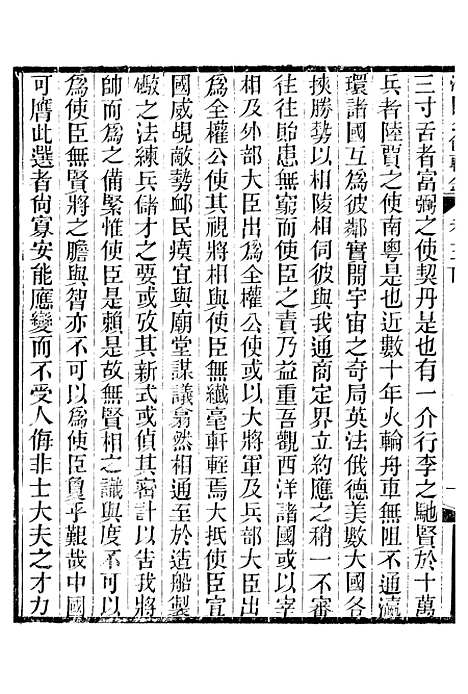 三寸舌者富弼之使契丹是也有一介行李之馳賢於十萬
兵者陸賈之使南粵是也近數十年火輪舟車無阻不通瀛
環諸國互爲彼鄰實開宇宙之奇局英法俄德美數大國各
挾勝勢以相陵相伺與我通商定界立約應之稍一不審
往往貽患無窮而使臣之責乃益重吾觀西洋諸國或以宰
相及外部大臣出爲全權公使或以大將軍及兵部大臣出
爲全權公使其視將相與使臣無纖毫軒輊焉大抵使臣宣
國威覘敵勢卹民瘼宜與廟堂謀議翕然相通至於造船製
礮之法練兵儲才之要或效其新式或偵其密計以告我將
帥而爲之備繄惟使臣是賴是故無賢相之識與度不可以
爲使臣無賢將之膽與智亦不可以爲使臣夐乎艱哉中國
可膺此選者尙寡安能應變而不受人侮非士大夫之才力